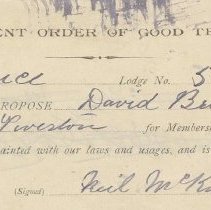 ENT ORDER OF GOOD TE
Lodge No. 5
ROPOSE David Be
Liveston for Members
ainted with our laws and usages, and is
(Signed) Neil McK